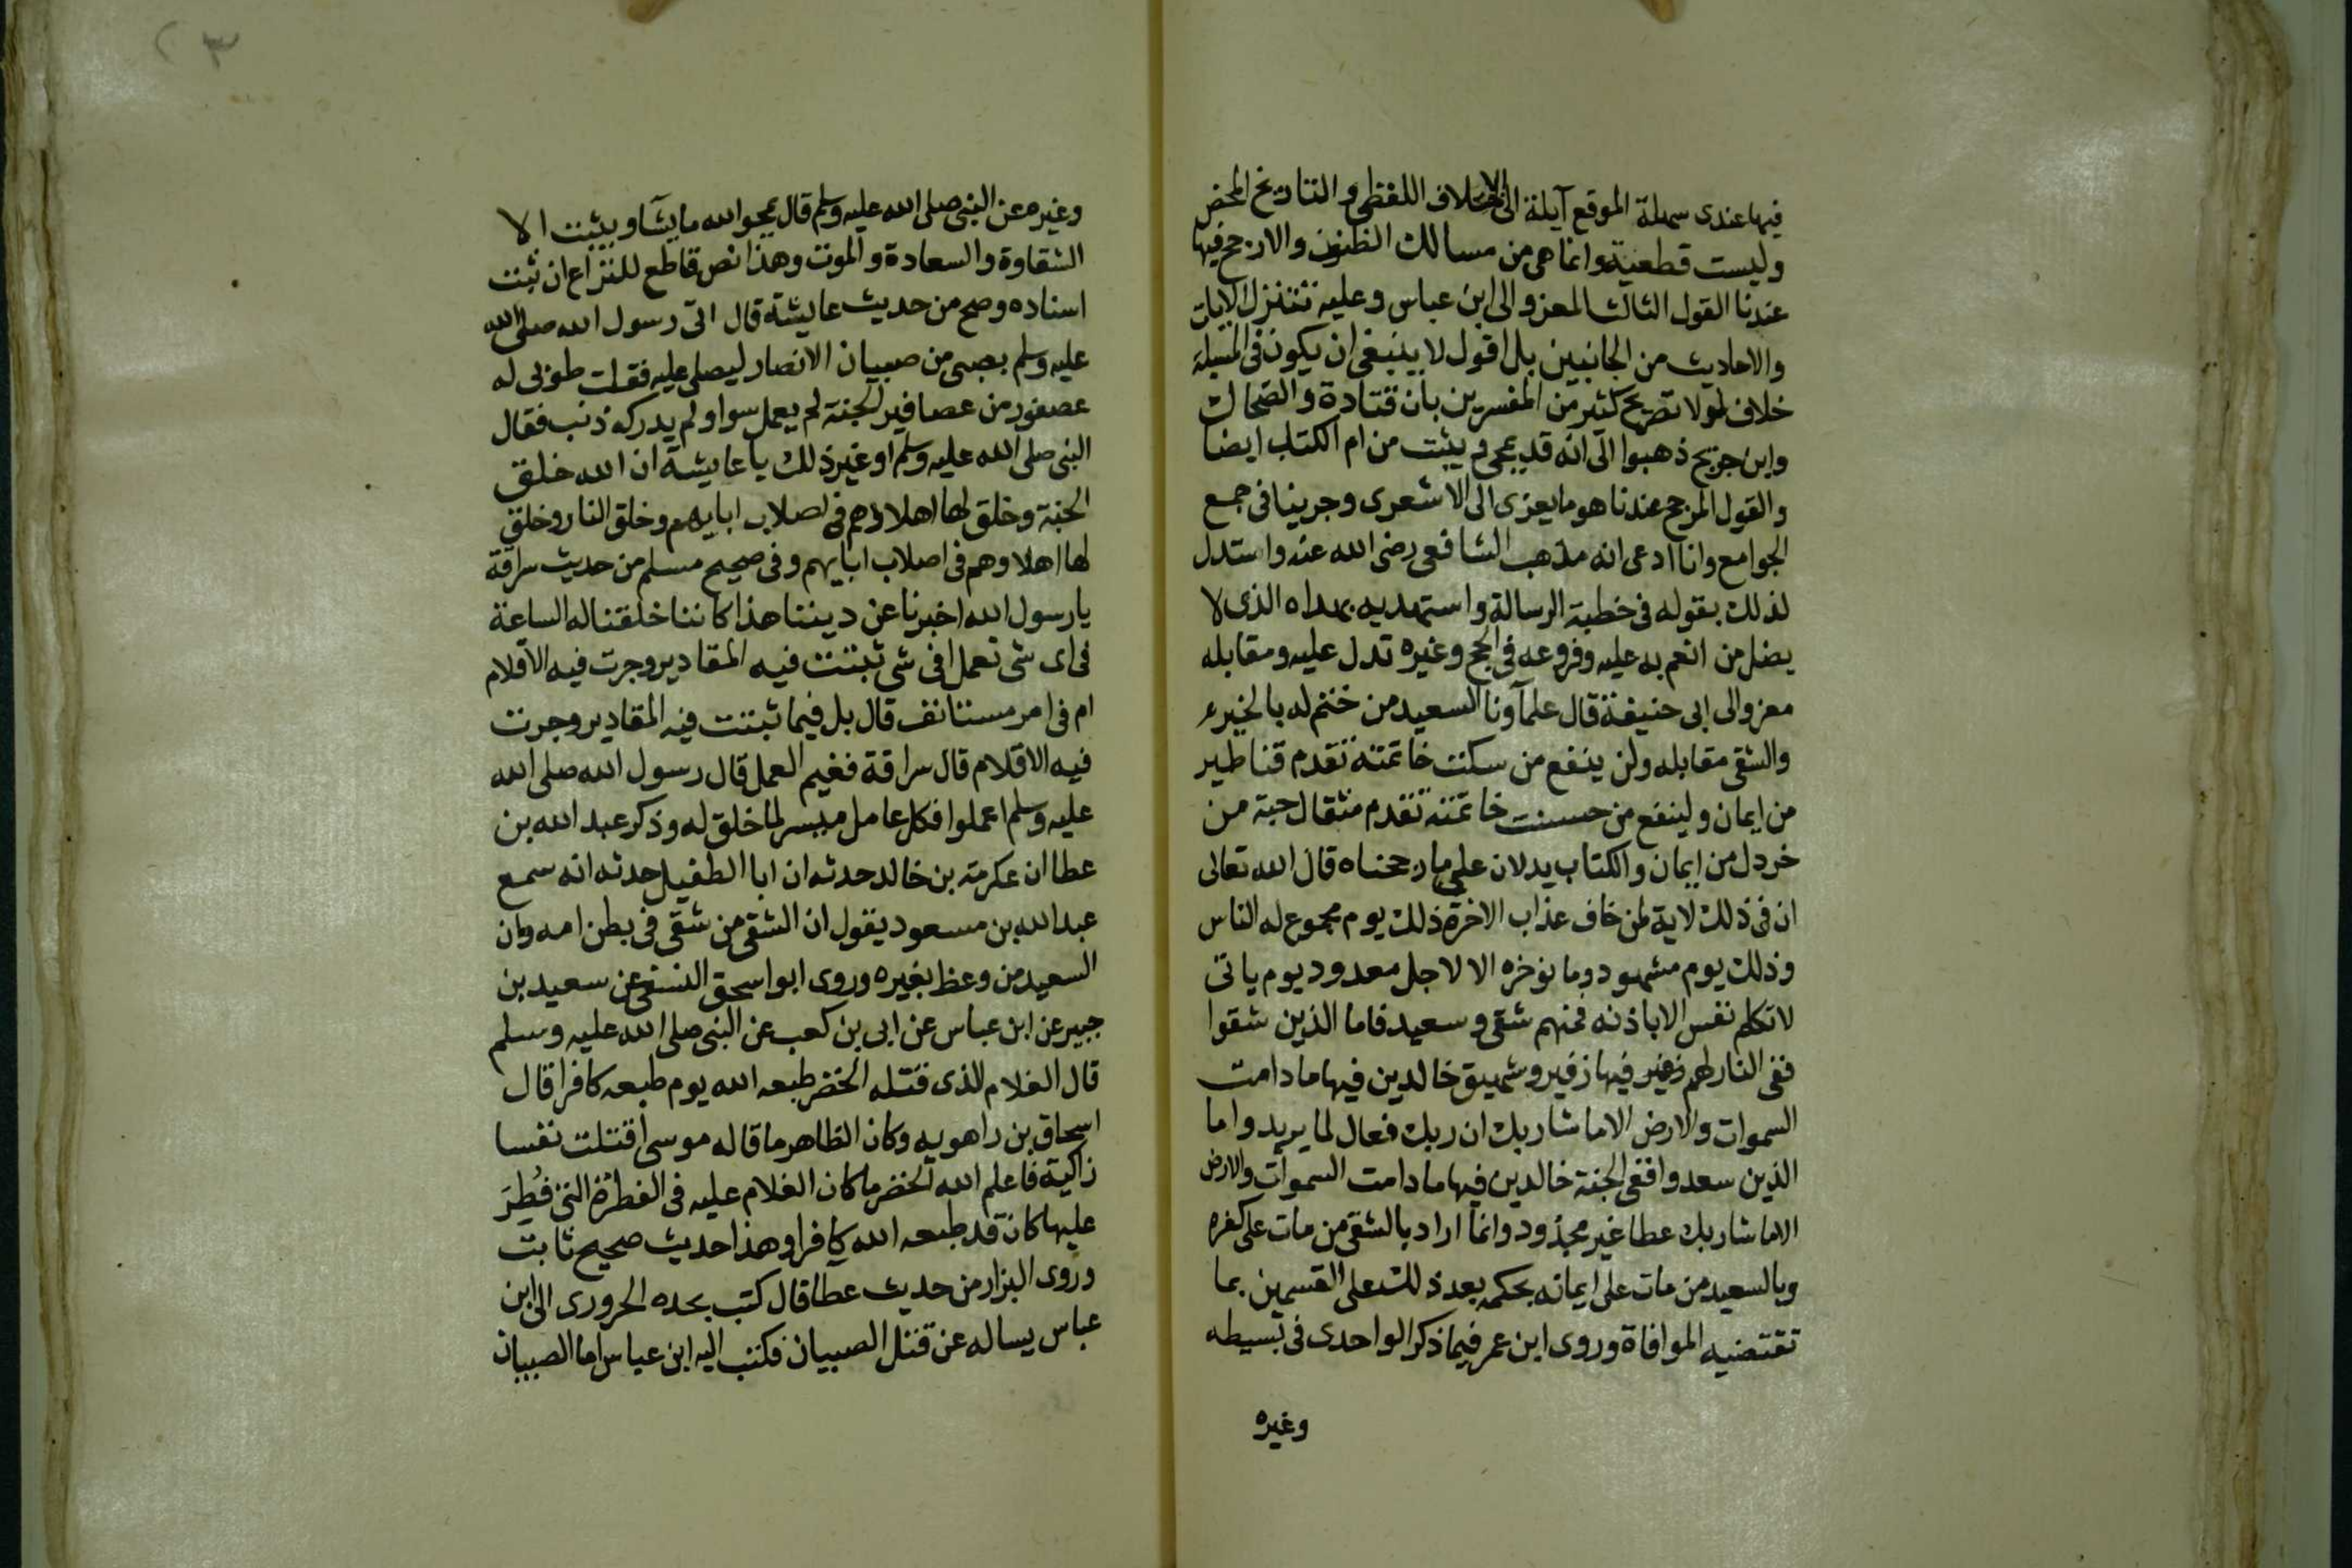 فيها عندى سهلة الموقع آيلة الى الاختلاف اللفظى والتاريخ المحض
وليست قطعية وانما هى من مسالك الظنون والارجح فيها
عندنا القول الثالث المعزو الى ابن عباس وعليه تتنزل الايات
والاحاديث من الجانبين بل اقول لا ينبغى ان يكون فى المسيلة
خلاف لولا تصريح كثير من المفسرين بان قتادة والضحاك
وابن جريج ذهبوا الى انه قد يمحى ويثبت من ام الكتاب ايضا
والقول المرجح عندنا هو ما يعزى الى الاشعرى وجرينا فى جمع
الجوامع وانا ادعى انه مذهب الشافعى رضى الله عنه واستدل
لذلك بقوله فى خطبة الرسالة واستهديه بهداه الذى لا
يضل من انعم به عليه وفروعه فى الحج وغيره تدل عليه ومقابله
معزو الى ابى حنيفة قال علمآونا السعيد من ختم له بالخير
والشقى مقابله ولن ينفع من سكنت خاتمته تقدم قناطير
من ايمان ولينفع من حسنت خاتمته تقدم مثقال حبة من
خردل من ايمان والكتاب يدلان على ما رجحناه قال الله تعالى
ان فى ذلك لاية لمن خاف عذاب الاخرة ذلك يوم مجموع له الناس
وذلك يوم مشهود وما نوخره الا لاجل معدود يوم ياتى
لا تكلم نفس الا باذنه فمنهم شقى وسعيد فاما الذين شقوا
ففى النار لهم زفير فيها زفير وشهيق خالدين فيها ما دامت
السموات والارض الا ما شا ربك ان ربك فعال لما يريد واما
الذين سعدوا ففى الجنة خالدين فيها ما دامت السموات والارض
الا ما شا ربك عطا غير مجذود وانما اراد بالشقى من مات على كفره
وبالسعيد من مات على ايمانه بحكمه بعد ذلك على القسمين بما
تقتضيه الموافاة وروى ابن عمر فيما ذكر الواحدى فى بسيطه
وغيره
٣
وغيره عن النبى صلى الله عليه وسلم قال يمحوا الله ما يشآ ويثبت الا
الشقاوة والسعادة والموت وهذا نص قاطع للنزاع ان ثبت
اسناده وصح من حديث عايشة قال اتى رسول الله صلى الله
عليه وسلم بصبى من صبيان الانصار ليصلى عليه فقلت طوبى له
عصفور من عصافير الجنة لم يعمل سوا ولم يدركه ذنب فقال
النبى صلى الله عليه وسلم او غير ذلك يا عايشة ان الله خلق
الجنة وخلق لها اهلا وهم فى اصلاب ابايهم وخلق النار وخلق
لها اهلا وهم فى اصلاب ابايهم وفى صحيح مسلم من حديث سراقة
يا رسول الله اخبرنا عن ديننا هذا كاننا خلقنا له الساعة
فى اى شى نعمل افى شى ثبتت فيه المقادير وجرت فيه الاقلام
ام فى امر مستانف قال بل فيما ثبتت فيه المقادير وجرت
فيه الاقلام قال سراقة ففيم العمل قال رسول الله صلى الله
عليه وسلم اعملوا فكل عامل ميسر لما خلق له وذكر عبد الله بن
عطا ان عكرمة بن خالد حدثه ان ابا الطفيل حدثه انه سمع
عبد الله بن مسعود يقول ان الشقى من شقى فى بطن امه وان
السعيد من وعظ بغيره وروى ابو اسحق النسفى عن سعيد بن
جبير عن ابن عباس عن ابى بن كعب عن النبى صلى الله عليه وسلم
قال الغلام الذى قتله الخضر طبعه الله يوم طبعه كافرا قال
اسحاق بن راهويه وكان الظاهر ما قاله موسى اقتلت نفسا
زاكية فاعلم الله الخضر ما كان الغلام عليه فى الفطرة التى فُطِرَ
عليها كان قد طبعه الله كافرا وهذا حديث صحيح ثابت
وروى البزار من حديث عطا قال كتب بحده الحرورى الى ابن
عباس يساله عن قتل الصبيان فكتب اليه ابن عباس اما الصبيان